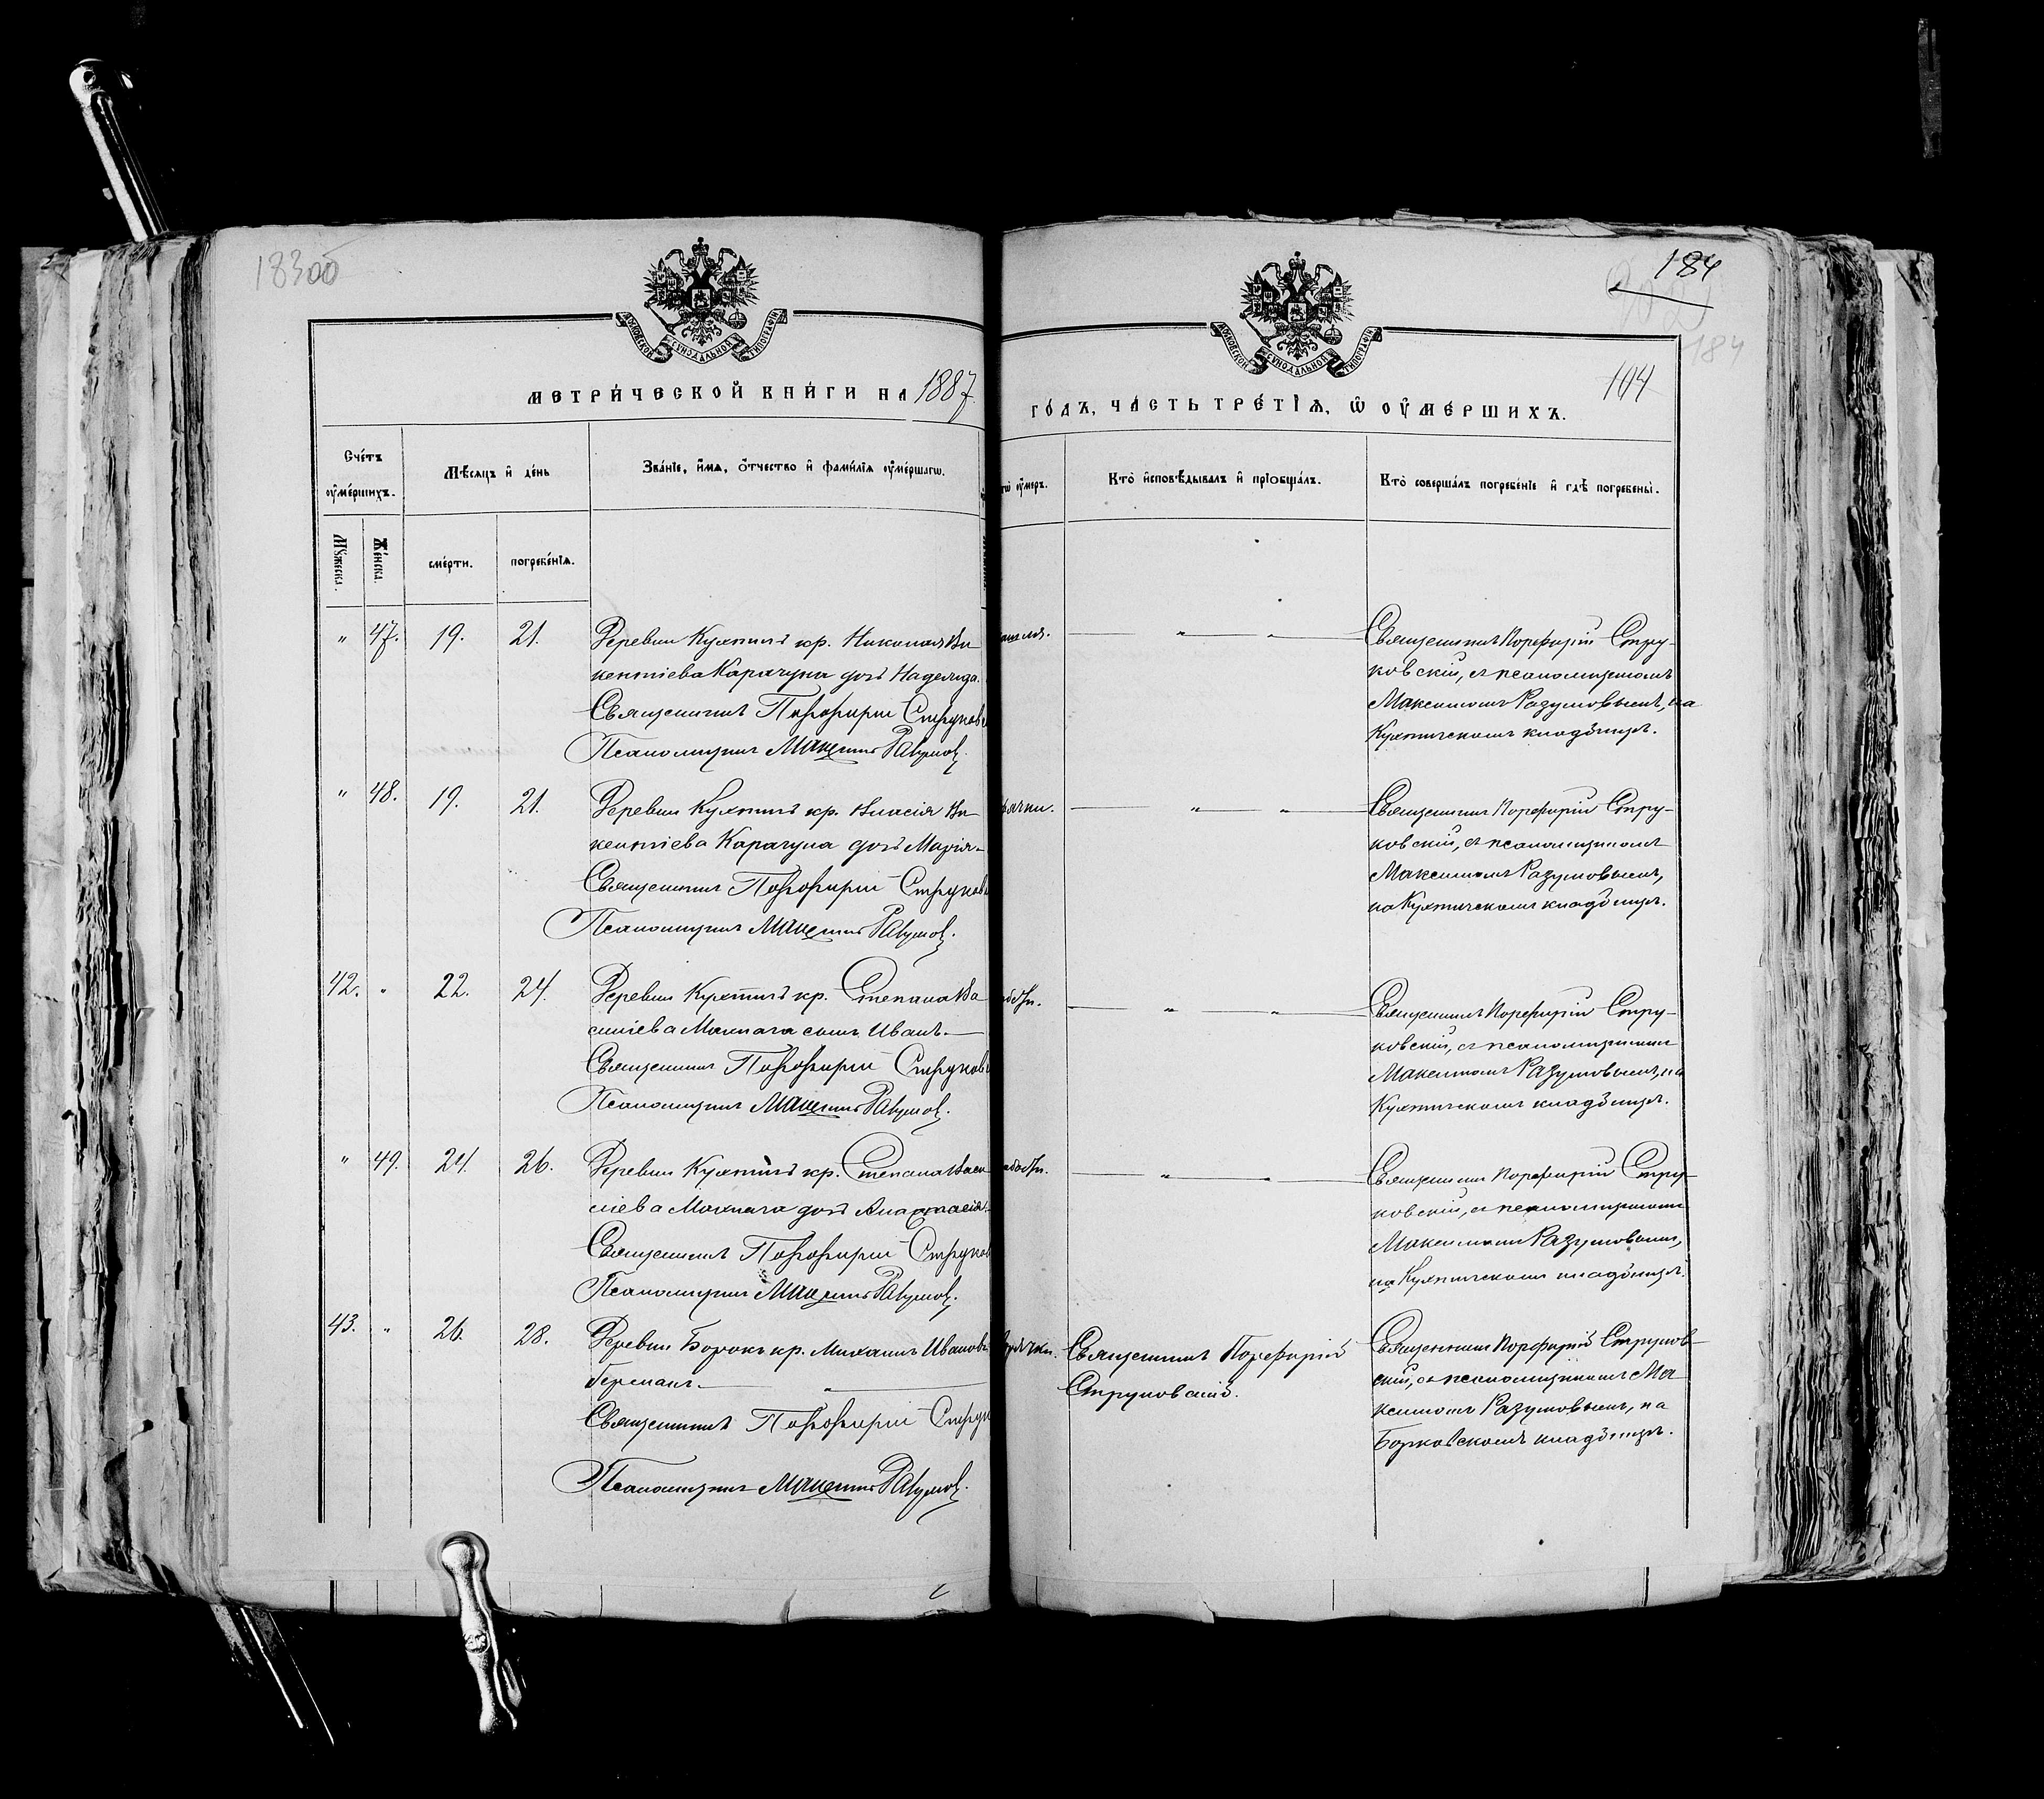 183об
184
184
104
МОСКОВСКОЙ СѴНОДАЛЬНОЙ ТИПОГРАФІИ
МОСКОВСКОЙ СѴНОДАЛЬНОЙ ТИПОГРАФІИ
МЕТРИ́ЧЕСКОЙ КНИ́ГИ НА 1887
ГО́ДЪ, ЧА́СТЬ ТРЕ́ТІѦ, Ѡ ОУ҆МЕ́РШИХЪ.
Сче́тъ оу҆ме́ршихъ.
Мѣ́сяцъ и҆ де́нь
Зва́нїе, и҆́мѧ, ѻ҆́тчество и҆ фами́лїѧ оу҆ме́ршагѡ.
оу҆́меръ.
Кто̀ и҆сповѣ́дывалъ и҆ прїобща́лъ.
Кто̀ соверша́лъ погребе́нїе и҆ гдѣ̀ погребены̀.
Мꙋ́жеска.
Же́нска.
сме́рти.
погребе́нїѧ.
" 47. 19. 21. Деревни Кухтичъ кр. Николая Ви
кентіева Карачуна дочь Надежда.
Священникъ Порфирій Струковс
Псаломщикъ Максимъ Разумов.
кашля. " " Священникъ Порфирій Стру-
ковскій, съ псаломщикомъ
Максимомъ Разумовымъ, на
Кухтичскомъ кладбищѣ.
" 48. 19. 21. Деревни Кухтичъ кр. Власія Ви
кентіева Карачуна дочь Марія.
Священникъ Порфирій Струковс
Псаломщикъ Максимъ Разумов.
рячки. " " Священникъ Порфирій Стру-
ковскій, съ псаломщикомъ
Максимомъ Разумовымъ,
на Кухтичскомъ кладбищѣ.
42. " 22. 24. Деревни Кухтичъ кр. Степана Ва
силіева Махнача сынъ Иванъ.
Священникъ Порфирій Струковс
Псаломщикъ Максимъ Разумов.
" " Священникъ Порфирій Стру-
ковскій, съ псаломщикомъ
Максимомъ Разумовымъ, на
Кухтичскомъ кладбищѣ.
" 49. 24. 26. Деревни Кухтичъ кр. Степана Васи
ліева Махнача дочь Анастасія.
Священникъ Порфирій Струков
Псаломщикъ Максимъ Разумов.
" " Священникъ Порфирій Стру-
ковскій, съ псаломщикомъ
Максимомъ Разумовымъ,
на Кухтичскомъ кладбищѣ.
43. " 26. 28. Деревни Борокъ кр. Михаилъ Ивановъ
Германъ. "
Священникъ Порфирій Струк
Псаломщикъ Максимъ Разумов.
рячки. Священникъ Порфирій
Струковскій.
Священникъ Порфирій Струков-
скій, съ псаломщикомъ Ма
ксимомъ Разумовымъ, на
Борковскомъ кладбищѣ.